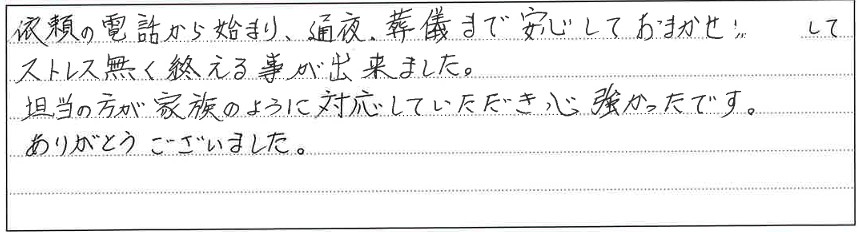 依頼の電話から始まり、通夜、葬儀まで安心しておまかせ して
ストレス無く終える事が出来ました。
担当の方が家族のように対応していただき心強かったです。
ありがとうございました。